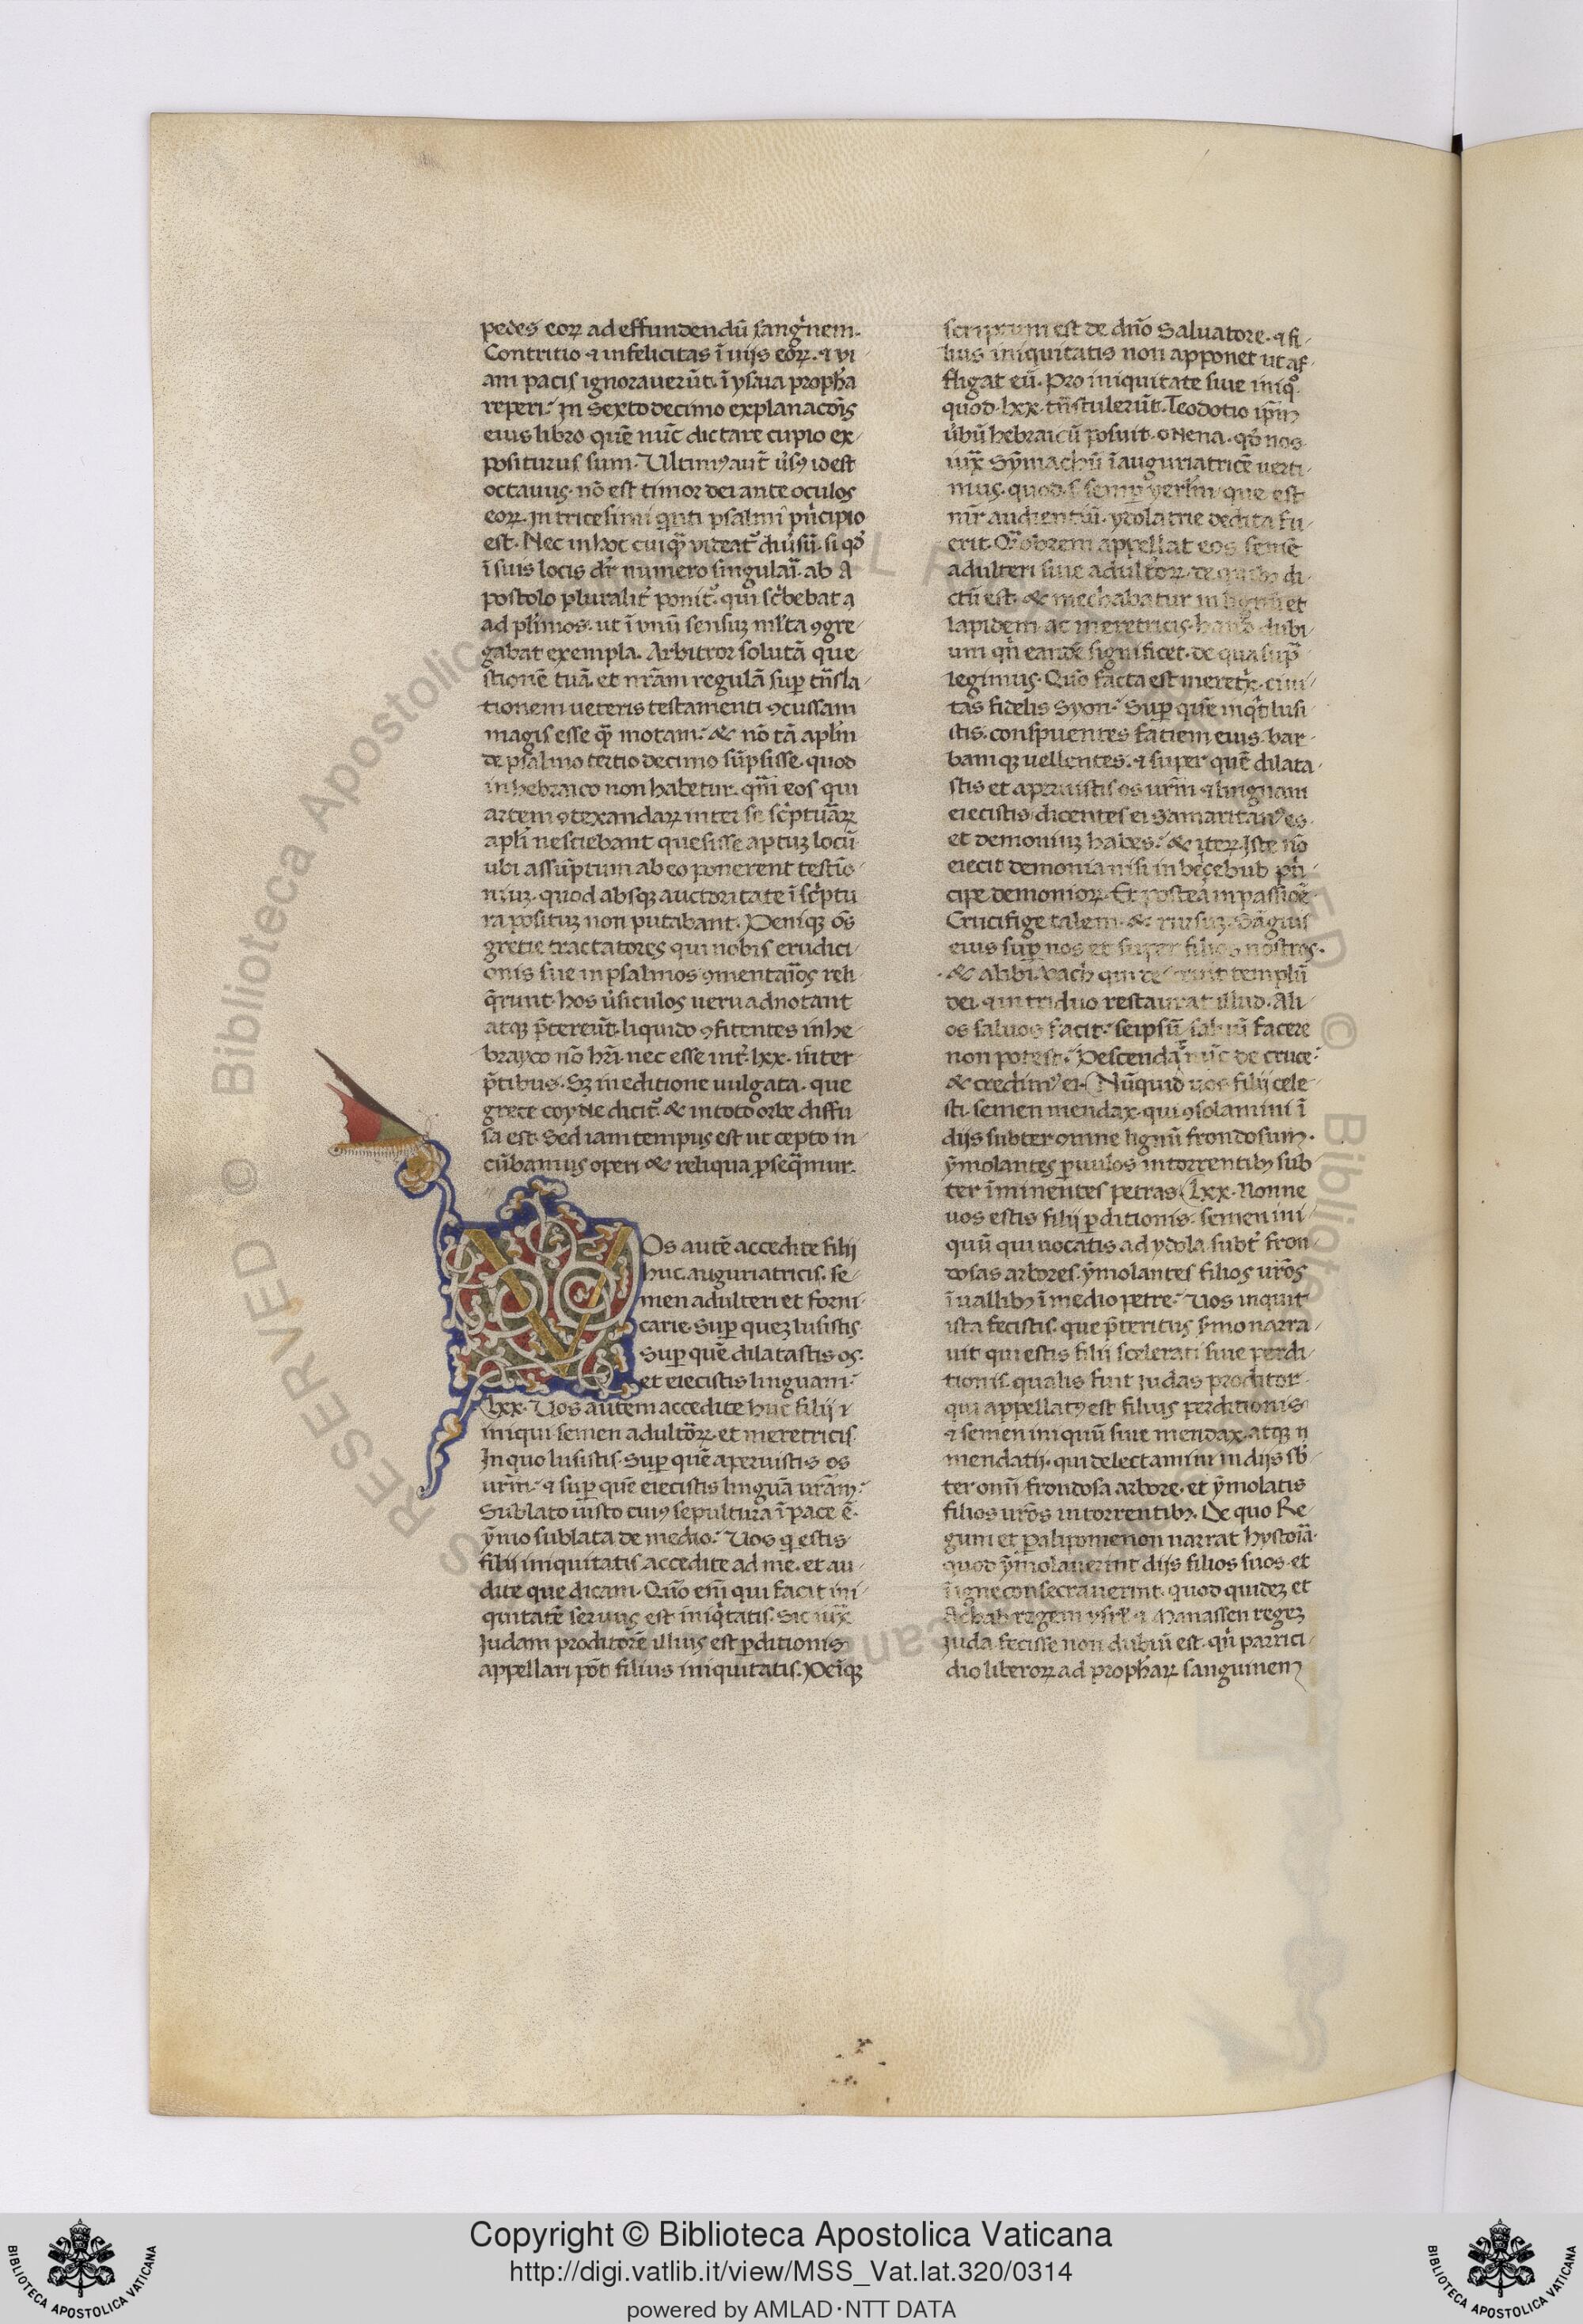 pedes eoꝝ ad effundendū sangͥnem.
Contritio ⁊ infelicitas ī uijs eoꝝ. ⁊ vi
am pacis ignorauerūt. ī ysaia prophᷓa
reperi: In sexto decimo explanacōis
eius libro quē nūc dictare cupio ex
positurus sum. Ultimꝰ aūt ūsꝰ id est
octauus. nō est timor dei ante oculos
eoꝝ. In tricesimi quīti psalmi pͥncipio
est. Nec in hoc cuiqᷓ videatᷣ diūsū. si qd̓
ī suis locis dr̄ numero singulari. ab A
postolo pluralitͥ ponitᷣ. qui scͥbebat
ad plīmos. ut ī vnū sensuꝫ mlt̓a ꝯgre
gabat exempla. Arbitror solutā que
stionē tuā. et nrām regulā suꝑ trīsla
tionem ueteris testamenti ꝯcussam
magis esse qᷓ motam: & nō tā aplīm
de psalmo tertio decimo sūpsisse. quod
in hebraico non habetur. qm̄ eos qui
artem ꝯtexandaꝝ inter se scͥptuāꝝ
aplī nesciebant quesisse aptuꝫ locū
ubi assūptum ab eo ponerent testīo
niuꝫ. quod absqꝫ auctoritate ī scͥptu
ra posituꝫ non putabant. Deniqꝫ oēs
grecie tractatores qui nobis erudici
onis sue in psalmos ꝯmentarios reli
qͥrunt. hos ūsiculos ueru adnotant
atqꝫ p̄tereūt. liquido ꝯfitentes in he
brayco nō hrī. nec esse intͥ. lxx. inter
p̄tibus. Sꝫ in editione uulgata. que
grece coyne dicitᷣ. & in toto orbe diffu
sa est. Sed iam tempus est ut cepto in
cūbamus operi & reliqua ꝓseqͣmur.
Vos autē accedite filij
huc. auguriatricis. se
men adulteri et forni
carie. Suꝑ queꝫ lusistis
Suꝑ quē dilatastis os.
et eiecistis linguam:
lxx. Uos autem accedite huc filij ⁊
iniqui. semen adultōꝝ. et meretricis.
In quo lusistis. Suꝑ quē aperuistis os
urm̄: ⁊ suꝑ quē eiecistis linguā urām:
Sublato iusto cuiꝰ sepultura ī pace ē.
ȳmo sublata de medio: Uos q̄ estis
filij iniquitatis accedite ad me. et au
dite que dicam. Quō em̄ qui facit ini
quitatē seruus est iniqͥtatis. Sic iux̄
Judam proditorē illius est ꝑditionis
appellari pōt filius iniquitatis. Deīqꝫ
scriptum est de dn̄o Saluatore. ⁊ fi
lius iniquitatis non apponet ut af
fligat eū. Pro iniquitate siue iniqͦ
quod. lxx. trīstulerūt. Teodotio ip̄m
ūbū hebraicū posuit. onena. qd̓ nos
iux̄ Sȳmachū ī auguriatricē uerti
mus. quod s. semꝑ yerlm̄. que est
nr̄ audientiū. ydolatrie dedita fu
erit. Qͣobrem appellat eos semē
adulteri siue adultōꝝ. de quibꝫ di
ctū est. & mechabatur in lignū et
lapidem. ac meretricis. haud dubi
um qͥn eandē significet. de qua supͣ
legimus. Quō facta est meretͥx. ciui
tas fidelis Syon: Suꝑ quē inqͥt lusi
stis. conspuentes faciem eius. bar
bamqꝫ uellentes. ⁊ super quē dilata
stis et aperuistis os urm̄ ⁊ linguam
eiecistis. dicentes ei Samaritanꝰ es.
et demoniuꝫ habes: & iteꝝ. Iste nō
eiecit demonia nisi in beçebub pͥn
cipe demonioꝝ. Et postea in passiōe
Crucifige talem. & rursuꝫ. Sāguis
eius suꝑ nos et super filios nostros.
& alibi. vach qui destruit templū
dei. ⁊ in triduo restaurat illud. Ali
os saluos facit: seipsū saluū facere
non potest. Descendat nūc de cruce:
& credimꝰ ei. Nūquid uos filij scele
sti. semen mendax. qui ꝯsolamini ī
dijs subter omne lignū frondosum.
ȳmolantes ꝑuulos in torrentibꝫ sub
ter īminentes petras. lxx. Nonne
uos estis filij ꝑditionis. semen ini
quū qui uocatis ad ydola subtͥ fron
dosas arbores. ȳmolantes filios urōs
ī uallibꝫ ī medio petre: Uos inquit
ista fecistis. que p̄teritus s̄mo narra
uit qui estis filij scelerati siue perdi
tionis. qualis fuit iudas proditor.
qui appellatꝰ est filius perditionis
⁊ semen iniquū siue mendax. atqꝫ
mendatij. qui delectamini in dijs sb̄
ter omī frondosa arbore. et ȳmolatis
filios urōs in torrentibꝫ. De quo Re
gum et ꝑalipomenon narrat hystoīa.
quod ȳmolauerint dijs filios suos. et
ī igne consecrauerint. quod quideꝫ et
Achab regem ysrl̄. ⁊ Manassen regeꝫ
Juda fecisse non dubiū est. qͥn parrici
dio liberoꝝ ad prophāꝝ sanguinem
RESERVED © Biblioteca Apostolica Vaticana
Copyright © Biblioteca Apostolica Vaticana
http://digi.vatlib.it/view/MSS_Vat.lat.320/0314
powered by AMLAD·NTT DATA
BIBLIOTECA APOSTOLICA VATICANA
BIBLIOTECA APOSTOLICA VATICANA